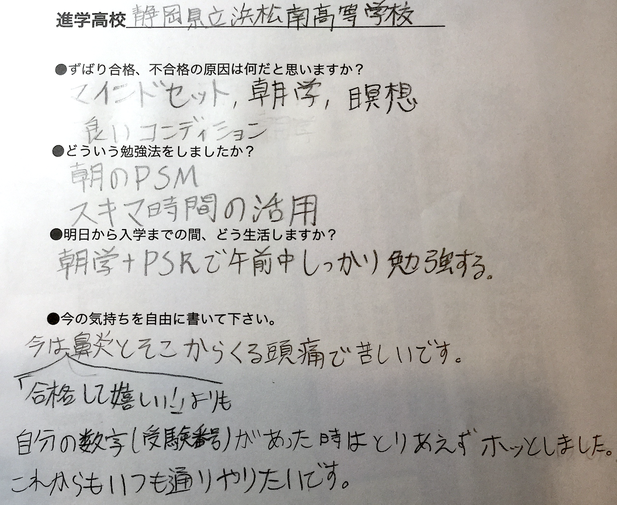 進学高校 静岡県立浜松南高等学校
●ずばり合格、不合格の原因は何だと思いますか？
マインドセット, 朝学, 瞑想
良いコンディション
●どういう勉強法をしましたか？
朝のPSM
スキマ時間の活用
●明日から入学までの間、どう生活しますか？
朝学+PSRで午前中しっかり勉強する。
●今の気持ちを自由に書いて下さい。
今は鼻炎とそこからくる頭痛で苦しいです。
「合格して嬉しい!」よりも
自分の数字(受験番号)があった時はとりあえずホッとしました。
これからもいつも通りやりたいです。